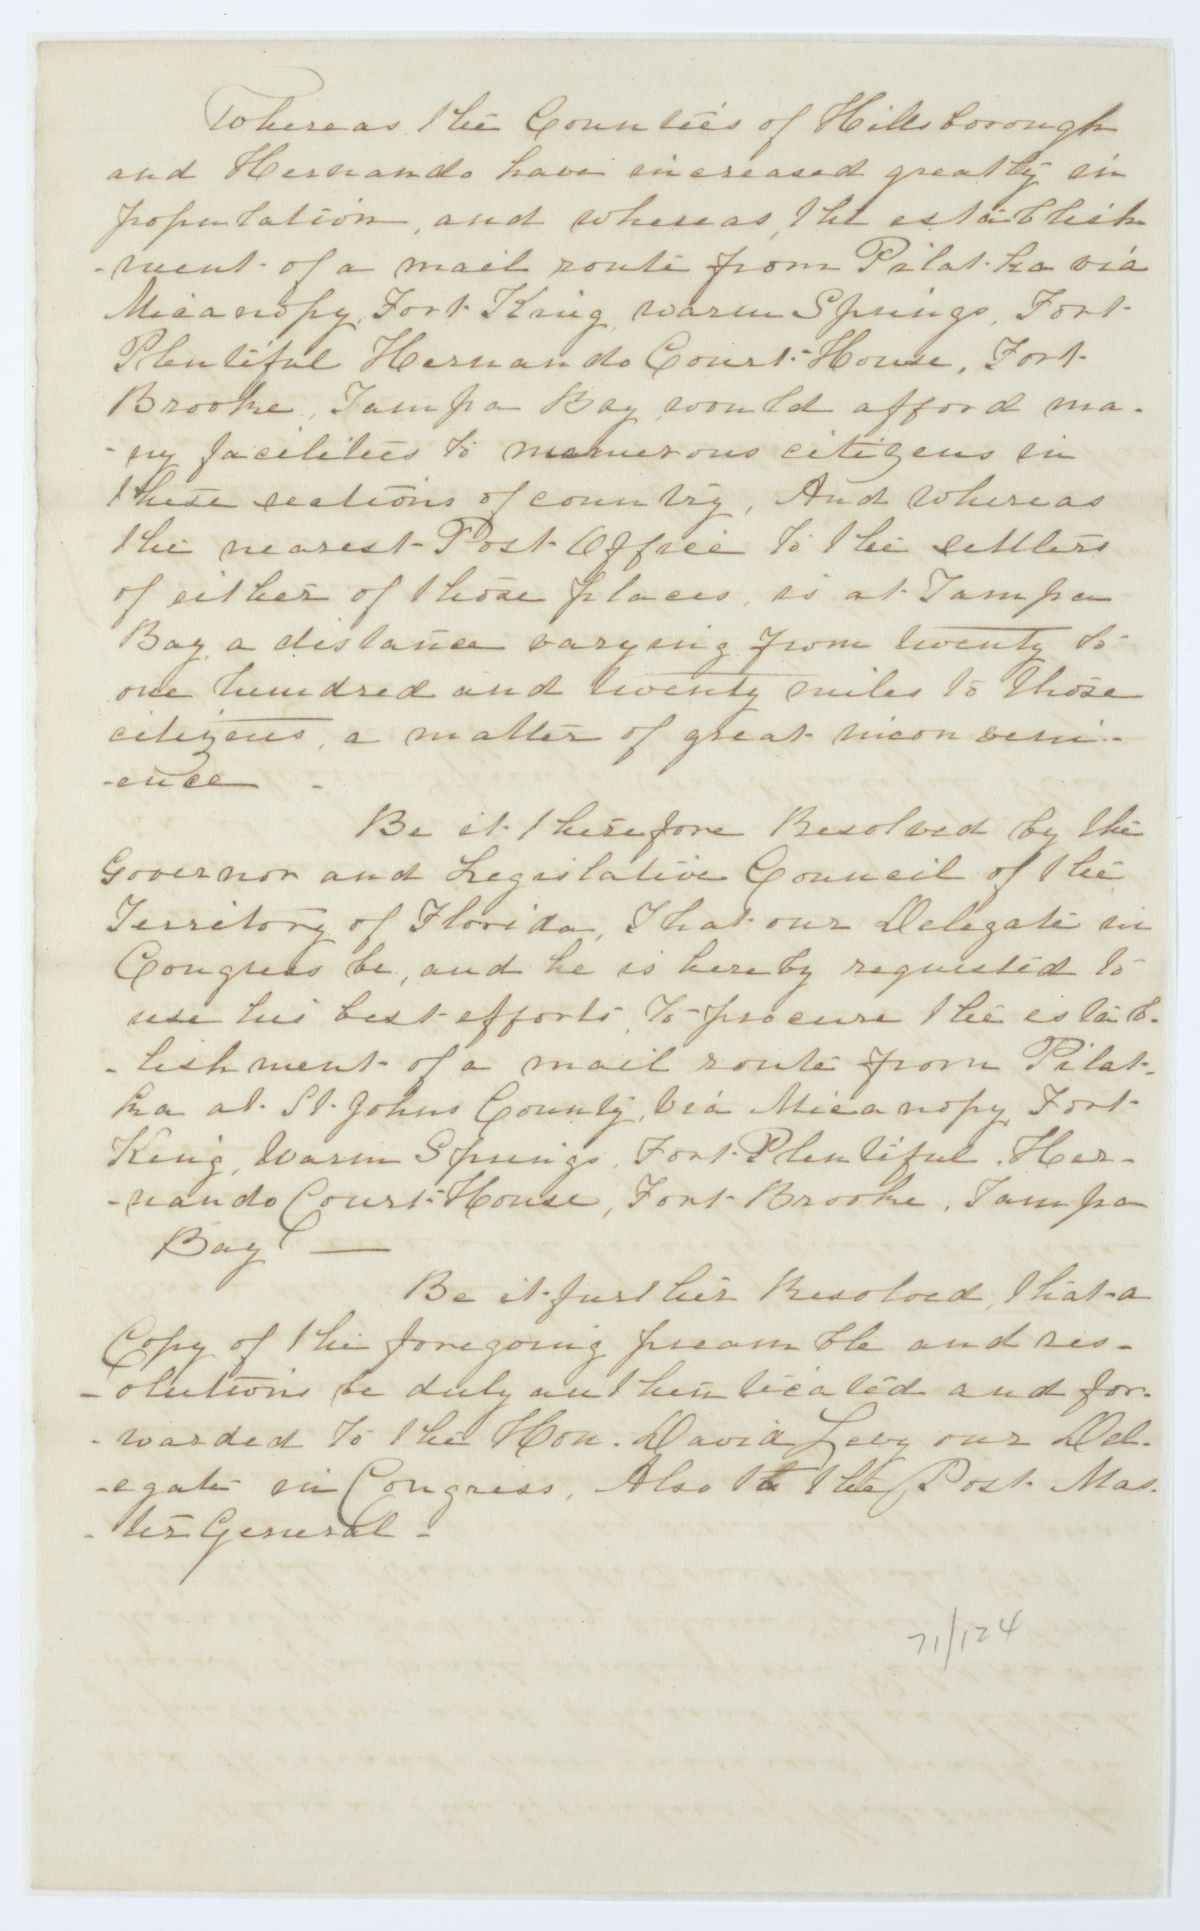 Whereas the Counties of Hillsborough
and Hernando have increased greatly in
population, and whereas, the establish
-ment of a mail route from Pilat-ka via
Micanopy, Fort King, warm Springs, Fort
Plentiful Hernando Court House, Fort
Brooke, Tampa Bay would afford ma-
-ny facilities to numerous citizens in
these sections of country, And whereas
the nearest Post Office to the settlers
of either of those places, is at Tampa
Bay, a distance varying from twenty to
one hundred and twenty miles to those
citizens, a matter of great inconveni-
-ence -
Be it therefore Resolved by the
Governor and Legislative Council of the
Territory of Florida, That our Delegate in
Congress be, and he is hereby requested to
use his best efforts, to procure the estab-
-lishment of a mail route from Pilat-
ka at St Johns County, via Micanopy, Fort
King, Warm Springs, Fort Plentiful, Her-
-nando Court House, Fort Brooke, Tampa
Bay —
Be it further Resolved, that a
Copy of the foregoing preamble and res-
-olutions be duly authenticated and for-
-warded to the Hon. David Levy our Del-
-egate in Congress, Also to the Post Mas-
-ter General -
71/124